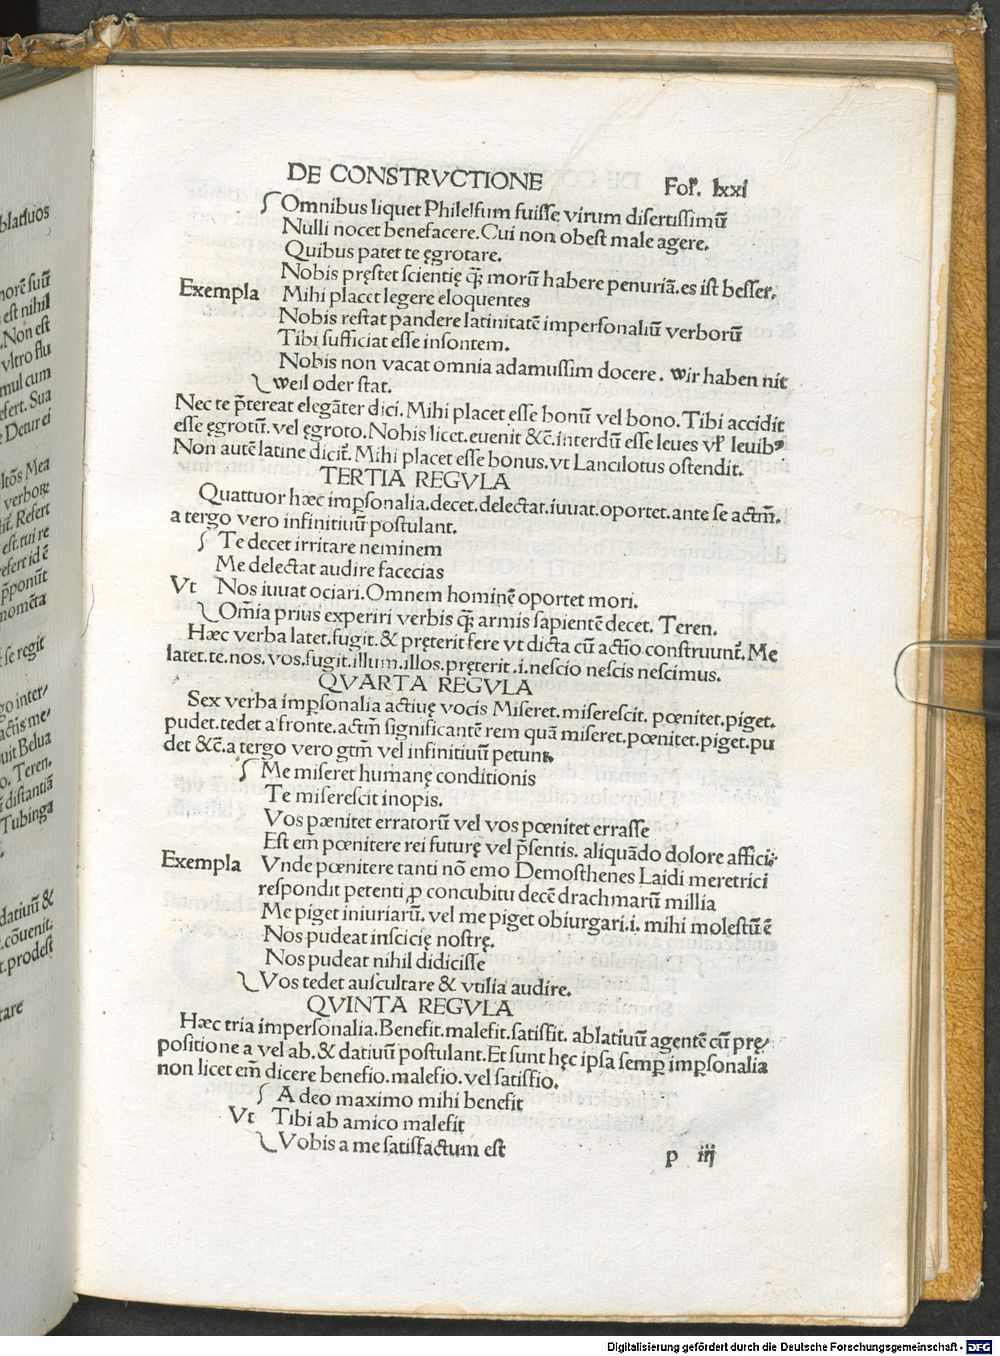 DE CONSTRVCTIONE Fol. lxxi
Omnibus liquet Philelfum fuiſſe virum diſertiſſimū
Nulli nocet benefacere. Cui non obeſt male agere.
Quibus patet te ęgrotare.
Nobis pręſtet ſcientię qꝫ morū habere penuriā. es iſt beſſer.
Exempla Mihi placet legere eloquentes
Nobis reſtat pandere latinitatē imperſonaliū verborū
Tibi ſufficiat eſſe inſontem.
Nobis non vacat omnia adamuſſim docere. wir haben nit
weil oder ſtat.
Nec te p̄tereat elegāter dici. Mihi placet eſſe bonū vel bono. Tibi accidit
eſſe ęgrotū. vel ęgroto. Nobis licet. euenit &c̄. interdū eſſe leues vl̓ leuibꝰ
Non autē latine dicit̄. Mihi placet eſſe bonus. vt Lancilotus oſtendit.
TERTIA REGVLA
Quattuor hæc imꝑſonalia. decet. delectat. iuuat. oportet. ante ſe actm̄.
a tergo vero infinitiuū poſtulant.
Te decet irritare neminem
Me delectat audire facecias
Vt Nos iuuat ociari. Omnem hominē oportet mori.
Om̄ia prius experiri verbis qꝫ armis ſapientē decet. Teren.
Hæc verba latet. fugit. & pręterit fere vt dicta cū actīo conſtruunt̄. Me
latet. te. nos. vos. fugit. illum. illos. pręterit .i. neſcio neſcis neſcimus.
QVARTA REGVLA
Sex verba imꝑſonalia actiuę vocis Miſeret. miſereſcit. pœnitet. piget.
pudet. tedet a fronte. actm̄ ſignificantē rem quā miſeret. pœnitet. piget. pu
det &c̄. a tergo vero gtm̄ vel infinitiuū petunt.
Me miſeret humanę conditionis
Te miſereſcit inopis.
Vos pænitet erratorū vel vos pœnitet erraſſe
Eſt em̄ pœnitere rei futurę vel p̄ſentis. aliquādo dolore affici.
Exempla Vnde pœnitere tanti nō emo Demoſthenes Laidi meretrici
reſpondit petenti ꝓ concubitu decē drachmarū millia
Me piget iniuriarū. vel me piget obiurgari .i. mihi moleſtū ē
Nos pudeat inſcicię noſtrę.
Nos pudeat nihil didiciſſe
Vos tedet auſcultare & vtilia audire.
QVINTA REGVLA
Hæc tria imperſonalia. Benefit. malefit. ſatiſfit. ablatiuū agentē cū pręꝭ
poſitione a vel ab. & datiuū poſtulant. Et ſunt hęc ipſa ſemꝑ imꝑſonalia
non licet em̄ dicere benefio. malefio. vel ſatiſfio.
A deo maximo mihi benefit
Vt Tibi ab amico malefit
Vobis a me ſatiſfactum eſt
p iij
Digitalisierung gefördert durch die Deutsche Forschungsgemeinschaft - DFG